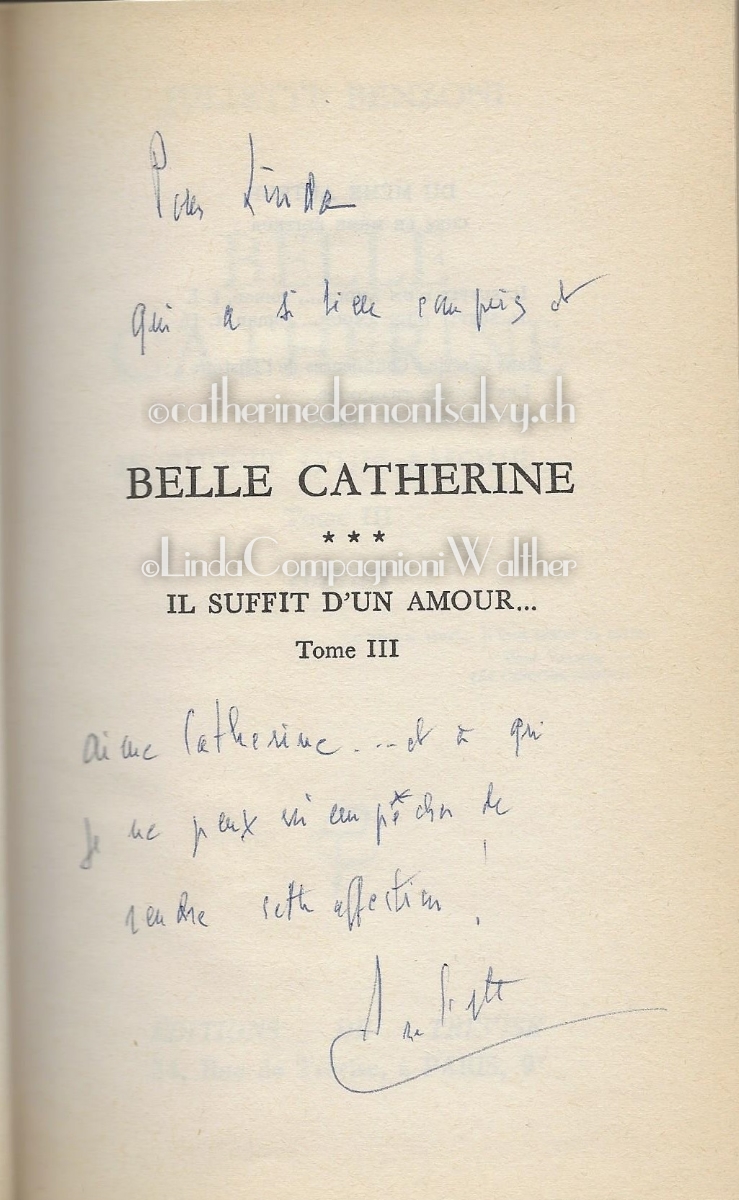 Pour Linda
qui a si bien compris et
©catherinedemontsalvy.ch
BELLE CATHERINE
* * *
©Linda Compagnioni Walther
IL SUFFIT D'UN AMOUR...
Tome III
aimé Catherine... et à qui
je ne peux m'empêcher de
rendre cette affection !